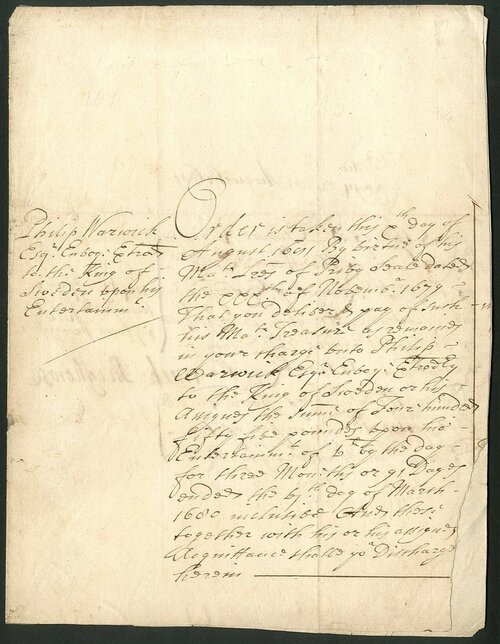 Philip Warwick
Esqr. Envoy: Extrao
to the King of
Sweden upon his
Entertainmt.
Order is taken this xth day of
August 1681 By virtue of his
Mats. Lres of Privy Seale dated
the xxxth of Novembr. 1679
That you deliver & pay of such
his Mats. Treasure as remaines
in your charge unto Philip
Warwick Esqr. Envoy: Extrordry
to the King of Sweden or his
Assignes the Summe of Four hundred
fifty five poundes upon his
Entertainmt. of vl. by the day
for three Monthes or 91 Dayes
ended the day of March
1680 inclusive And these
together with his or his assignes
Acquittance shalbe yor. Discharge
herein